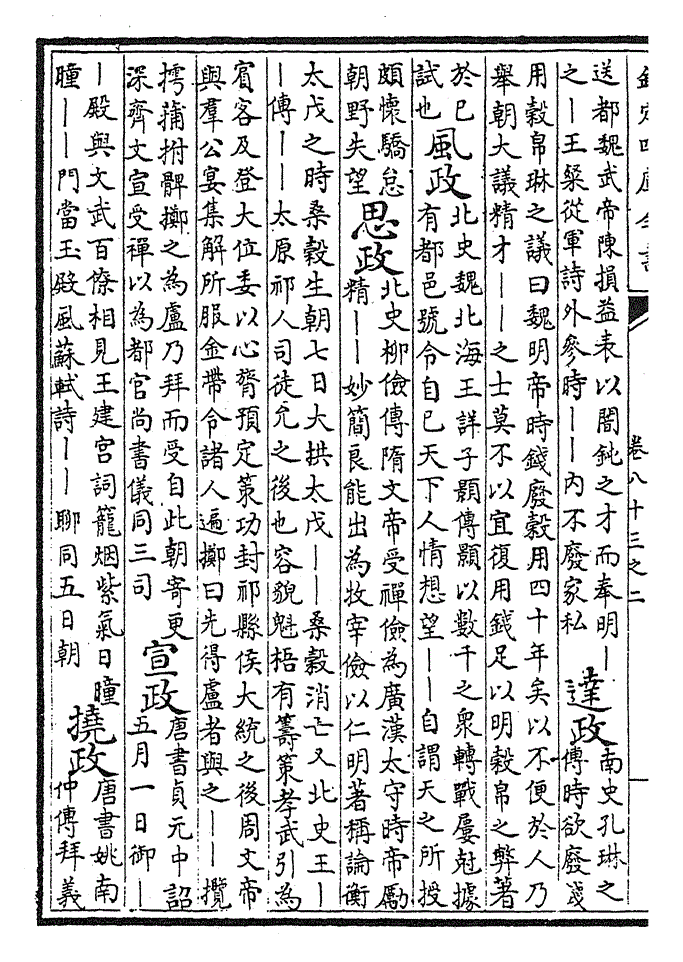 欽定四庫全書
卷八十三之二
送都魏武帝陳損益表以闇鈍之才而奉明—
之—王粲從軍詩外參時——内不廢家私
達政
南史孔琳之
傳時欲廢錢
用穀帛琳之議曰魏明帝時錢廢穀用四十年矣以不便於人乃
舉朝大議精才——之士莫不以宜復用錢足以明穀帛之弊著
於已
試也
風政
北史魏北海王詳子顥傳顥以數千之衆轉戰屢尅據
有都邑號令自已天下人情想望——自謂天之所授
頗懷驕怠
朝野失望
思政
北史柳儉傳隋文帝受禪儉為廣漢太守時帝勵
精——妙簡良能出為牧宰儉以仁明著稱論衡
太戊之時桑穀生朝七日大拱太戊——桑穀消亡又北史王—
—傳——太原祁人司徒允之後也容貌魁梧有籌策孝武引為
賓客及登大位委以心膂預定策功封祁縣侯大統之後周文帝
與羣公宴集解所服金帶令諸人遍擲曰先得盧者與之——攬
摴蒱拊髀擲之為盧乃拜而受自此朝寄更
深齊文宣受禪以為都官尚書儀同三司
宣政
唐書貞元中詔
五月一日御—
—殿與文武百僚相見王建宮詞籠烟紫氣日曈
曈——門當玉殿風蘇軾詩——聊同五日朝
撓政
唐書姚南
仲傳拜義